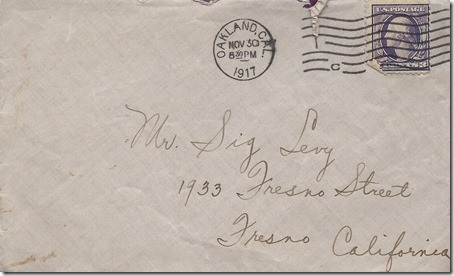 OAKLAND, CAL.
NOV 30
8 30 PM
1917
C
U.S. POSTAGE
Mr. Sig Levy
1933 Fresno Street
Fresno California